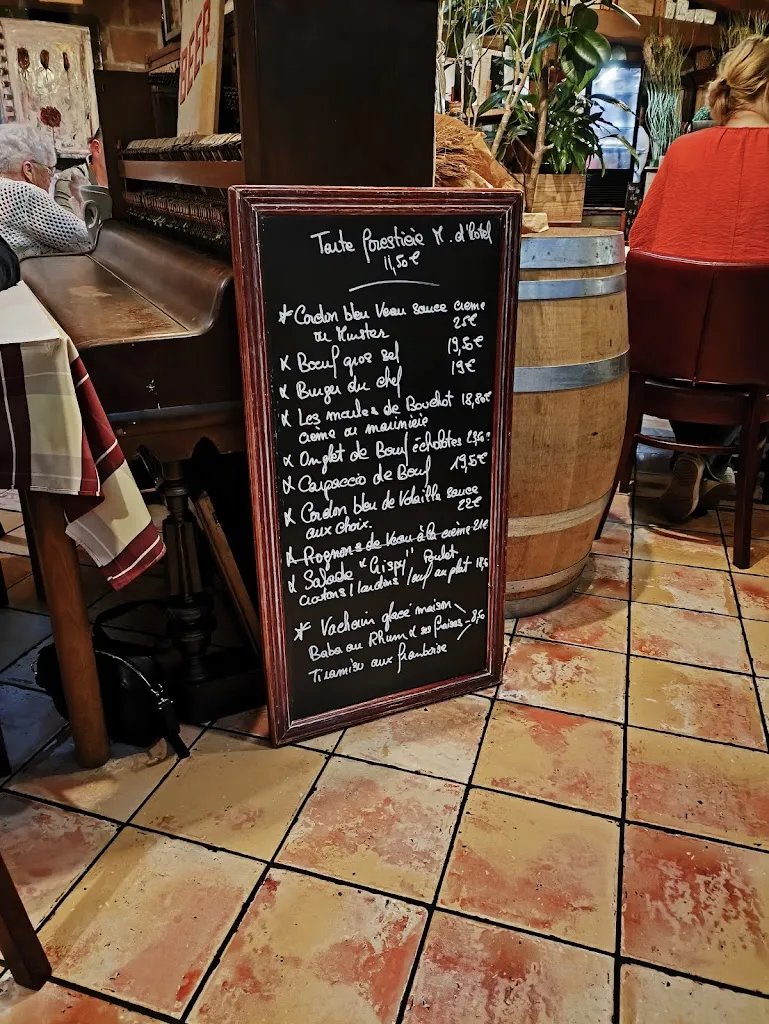 BEER
Tarte forestière M. d'hôtel
11,50€
* Cordon bleu Veau sauce crème
ou Munster 25€
x Bœuf gros sel 19,50€
x Burger du chef 19€
x Les moules de Bouchot 18,80€
crème ou marinière
x Onglet de Bœuf échalotes
x Carpaccio de Bœuf 19,50€
x Cordon bleu de Volaille sauce
aux choix. 22€
x Rognons de Veau à la crème 21€
x Salade "Crispy" Poulet
croutons / lardons / œuf au plat
* Vacherin glacé maison
Baba au Rhum & ses fraises - 8,50
Tiramisu aux framboise